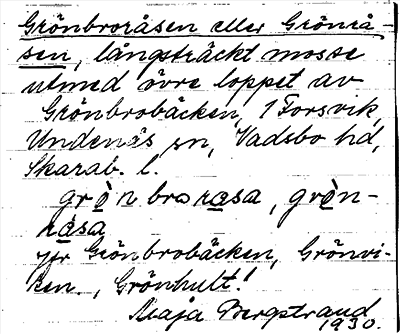 Grönbroråsen eller Grönrå-
sen, långsträckt mosse
utmed övre loppet av
Grönbrobäcken, 1 Forsvik,
Undenäs sn, Vadsbo hd,
Skarab. l.
grò̲n bro ra̲sa, grò̲n-
ra̲sa
jfr Grönbrobäcken, Grönvi-
ken, Grönhult!
Maja Bergstrand
1930.